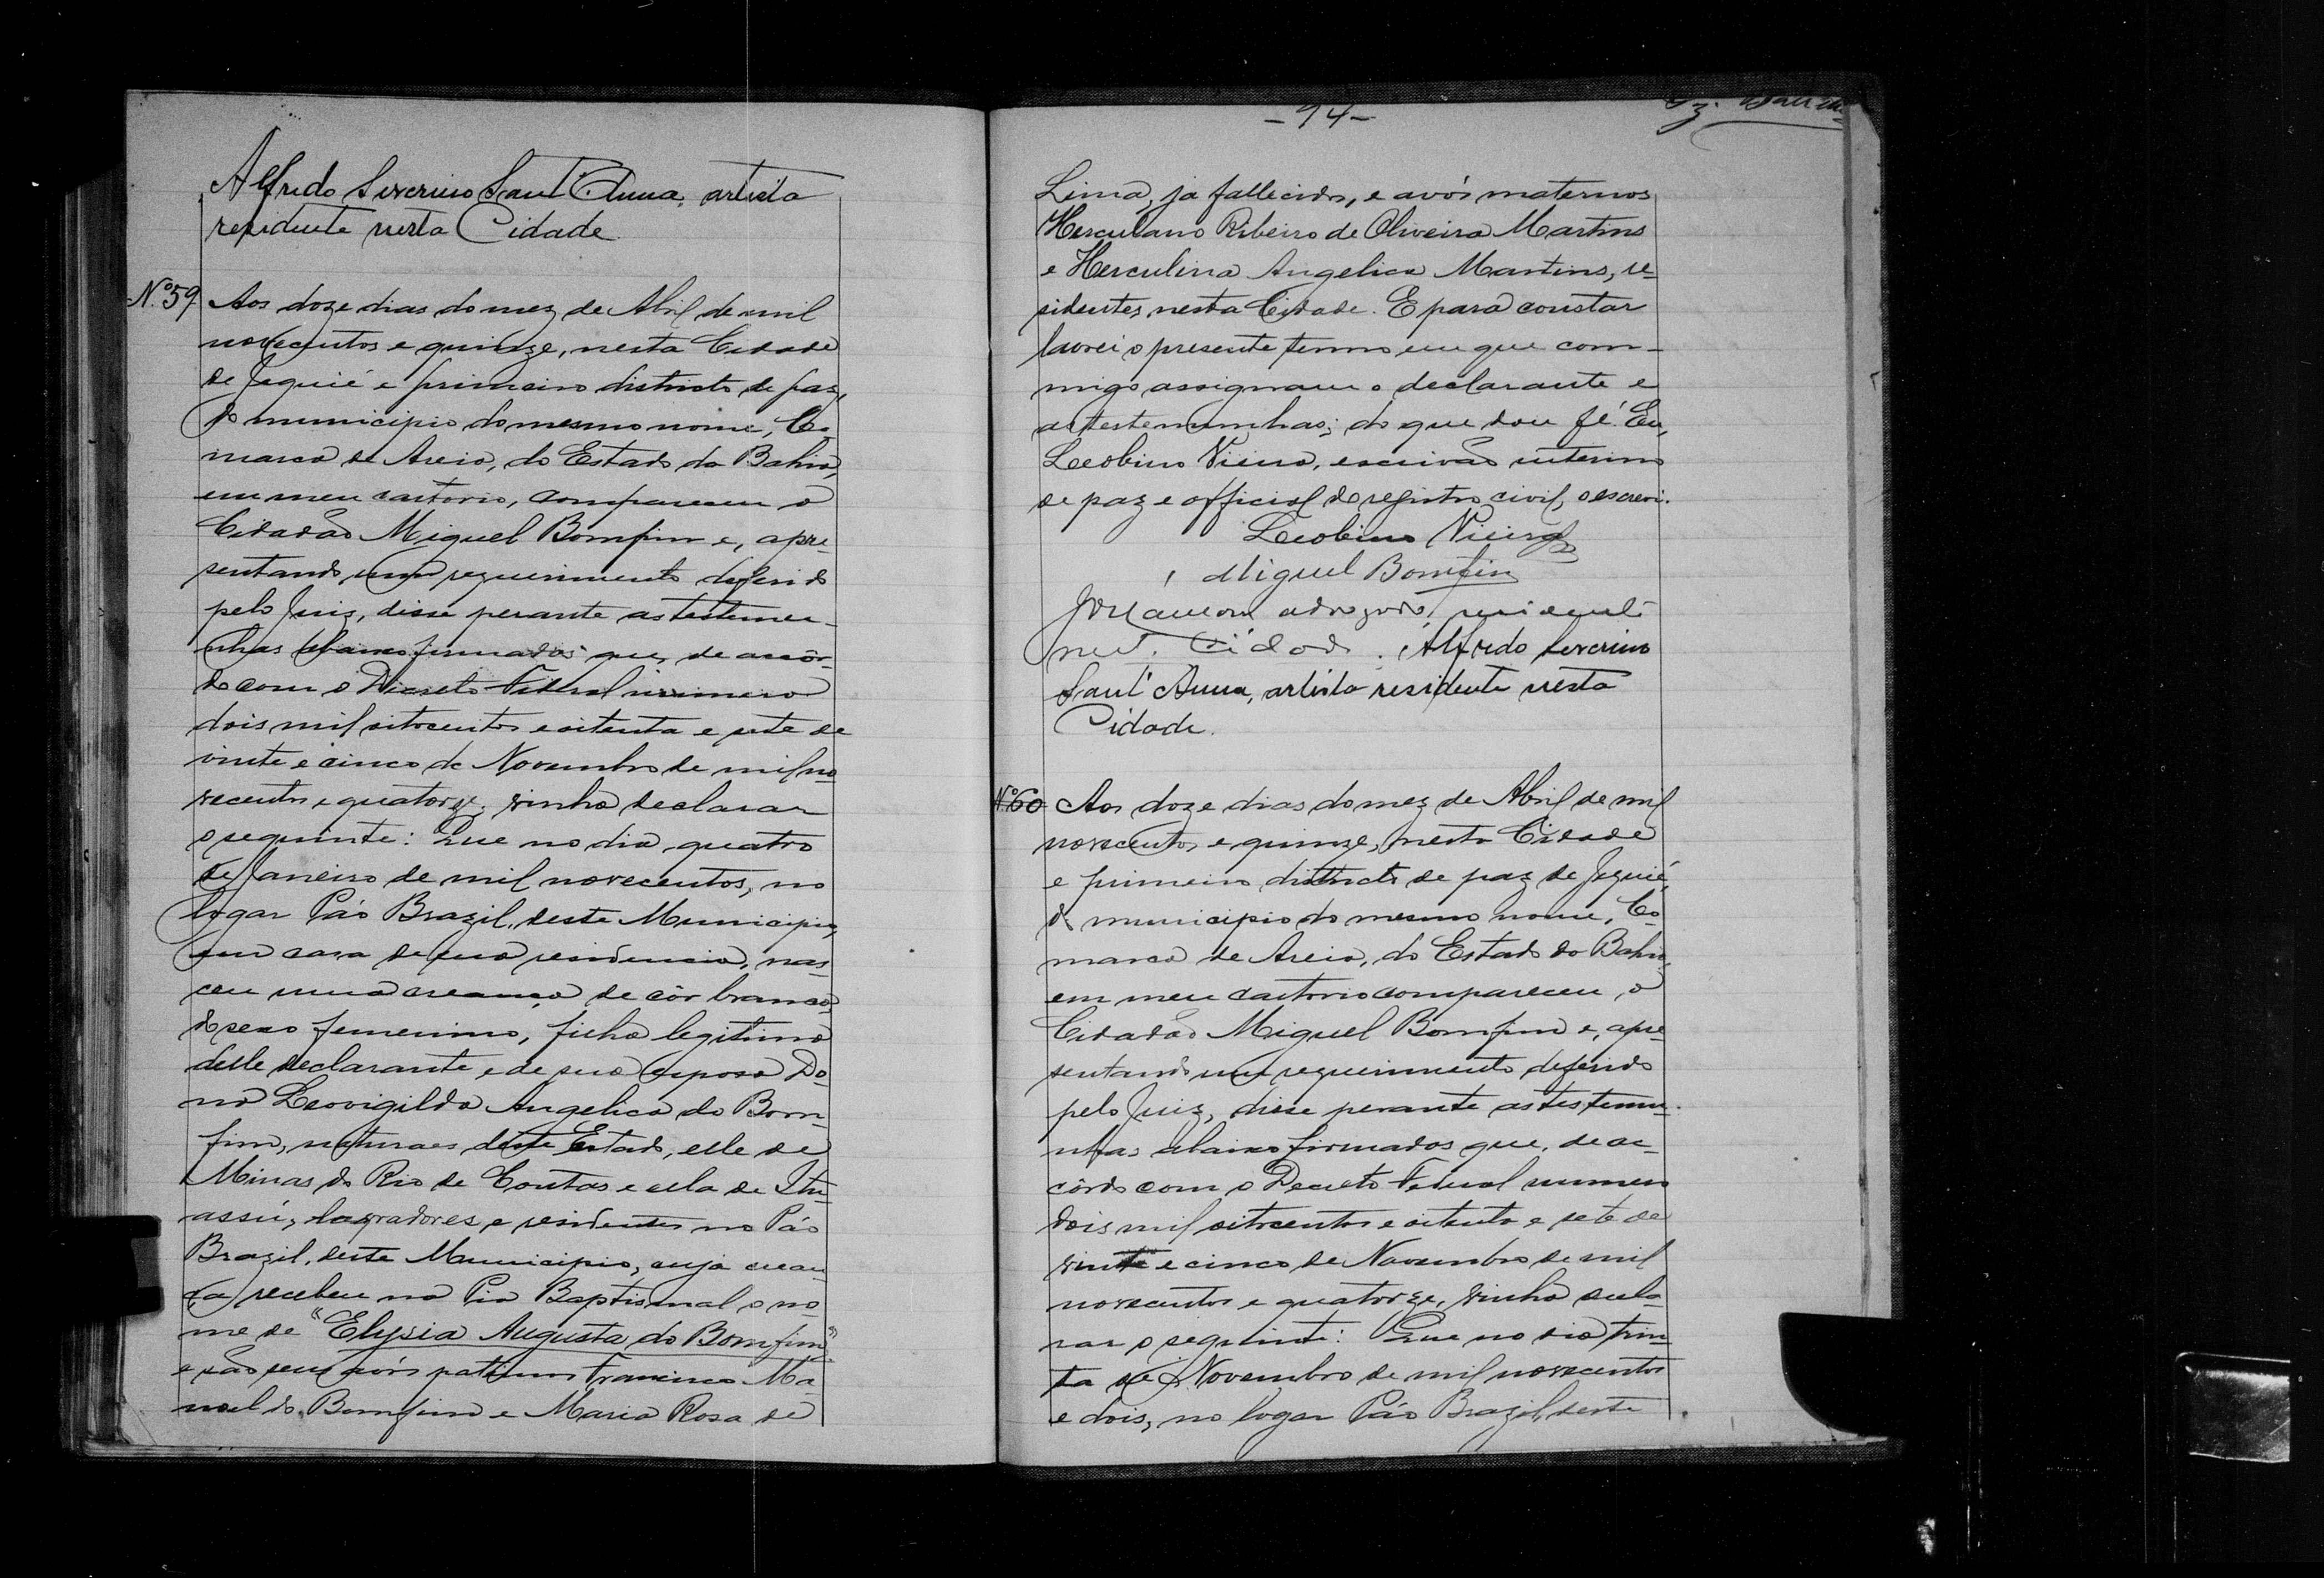 Alfredo Severino Sant'Anna, artista
residente nesta Cidade
Nº 59. Aos doze dias do mez de Abril de mil
novecentos e quinze, nesta Cidade
de Jequié e primeiro districto de paz,
do municipio do mesmo nome, Co-
marca de Areia, do Estado da Bahia,
em meu cartorio, compareceu o
Cidadão Miguel Bomfim e, apre-
sentando um requerimento deferido
pelo Juiz, disse perante as testemu-
nhas abaixo firmadas que, de accôr-
do com o Decreto Federal numero
dois mil oitocentos e oitenta e sete de
vinte e cinco de Novembro de mil no-
vecentos e quatorze, vinha declarar
o seguinte: Que no dia quatro
de Janeiro de mil novecentos, no
logar Páo Brazil, deste Municipio,
em casa de sua residencia, nas-
ceu uma creança de côr branca,
do sexo femenino, filha legitima
delle declarante e de sua esposa Do-
na Leovigilda Angelica do Bom-
fim, naturaes deste Estado, elle de
Minas do Rio de Contas e ella de Itu-
assú, lavradores e residentes no Páo
Brazil, deste Municipio, cuja crean-
ça recebeu na Pia Baptismal o no-
me de "Elysia Augusta do Bomfim"
e são seus avós paternos Francisco Ma-
noel do Bomfim e Maria Rosa de
-94-
Lima, já fallecidos, e avós maternos
Herculano Ribeiro de Oliveira Martins
e Herculina Angelica Martins, re-
sidentes nesta Cidade. E para constar
lavrei o presente termo em que com-
migo assignam o declarante e
as testemunhas; do que dou fé. Eu,
Leobino Vieira, escrivão interino
de paz e official do registro civil, o escrevi.
Leobino Vieira
Miguel Bomfim
advogado, residente
nest. Cidade. Alfredo Severino
Sant'Anna, artista residente nesta
Cidade.
Nº 60 Aos doze dias do mez de Abril de mil
novecentos e quinze, nesta Cidade
e primeiro districto de paz de Jequié,
do municipio do mesmo nome, Co-
marca de Areia, do Estado da Bahia,
em meu cartorio compareceu o
Cidadão Miguel Bomfim e, apre-
sentando um requerimento deferido
pelo Juiz, disse perante as testemu-
nhas abaixo firmadas que, de ac-
côrdo com o Decreto Federal numero
dois mil oitocentos e oitenta e sete de
vinte e cinco de Novembro de mil
novecentos e quatorze, vinha decla-
rar o seguinte: Que no dia trin-
ta de Novembro de mil novecentos
e dois, no logar Páo Brazil, deste